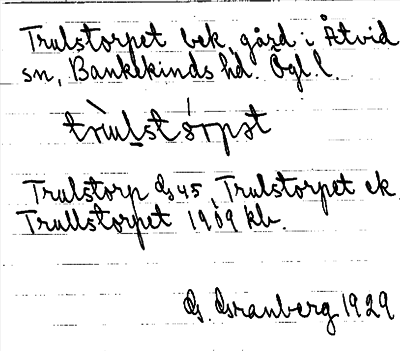 Trulstorpet bek. gård i Åtvid
sn, Bankekinds hd. Ögl. l.
trùlstórpət
Trulstorp Gs 45, Trulstorpet ek.
Trullstorpet 1909 kb.
G Granberg 1929